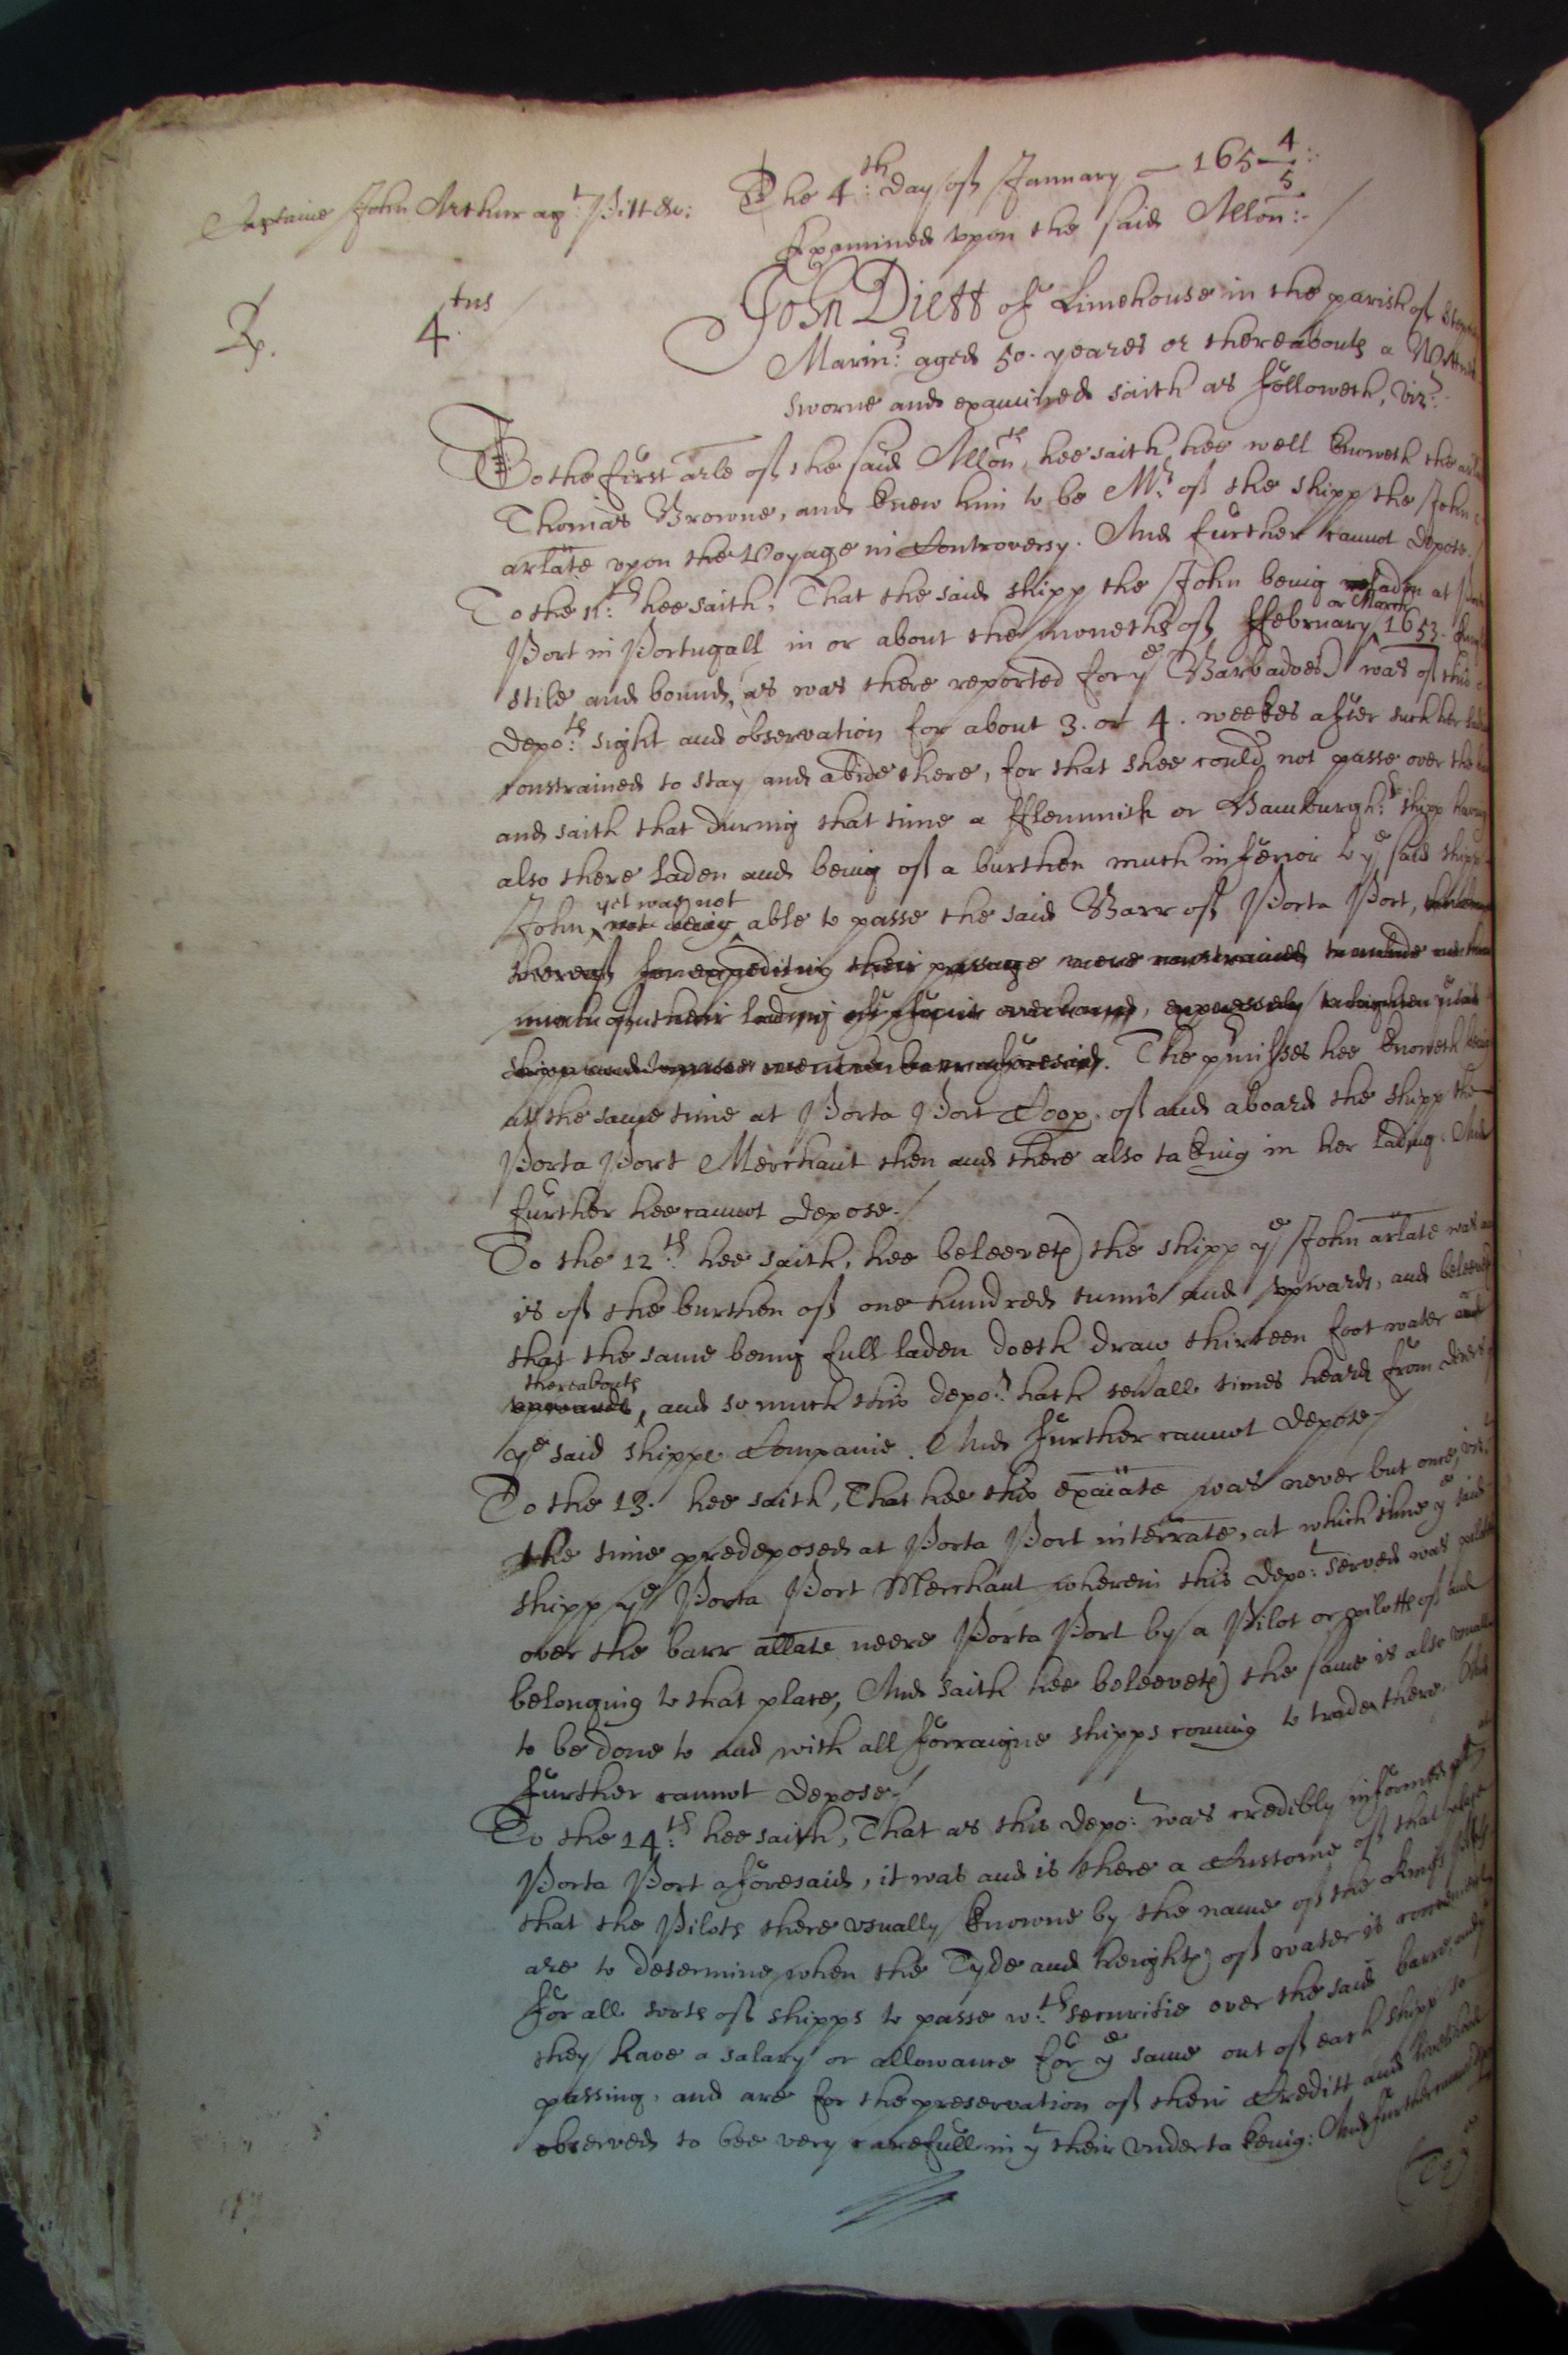 The 4:th day of January - 165 4/5:
Captaine John Arthur agt: Pitt &c:
Examined upon the said Allon:-/
4tus
John Diett of Limehouse in the parish of
Marinr: aged 50. yeares or thereabouts a
sworne and examined saith as followeth, vizt:
To the first arle of the said Allon, hee saith hee well knoweth the
Thomas Browne, and knew him to be Mr: of the shipp the John
arlate upon the Voyage in Controversy. And further cannot depose./
To the 11:th hee saith, That the said shipp the John being laden at
or March
Port in Portugall in or about the moneths of ffebruary 1653.
stile and bound, (as was there reported for ye Barbadoes) was of this
depots: sight and observation for about 3. or 4. weekes after such her
constrained to stay and abide there, for that shee could not passe over the
and saith that during that time a fflemmish or Hamburghr: shipp having
also there laden and being of a burthen much inferior to ye said shipp
yet was not
John, not being able to passe the said Barr of Porta Port,
thereof for expediting their passage were constrained to
their lading over board, expressely to lighten
shipp and to passe over the barr aforesaid. The prmisses hee knoweth being
at the same time at Porta Port Coopr. of and aboard the shipp the
Porta Port Merchant then and there also taking in her lading. And
further hee cannot depose./
To the 12th: hee saith, hee beleeveth the shipp ye John arlate was
is of the burthen of one hundred tunns and upwards, and beleeveth
that the same being full laden doeth draw thirteen foot water
thereabouts
upwards, and so much this depot: hath sevall times heard from divers
ye said shipps Companie. And further cannot depose-/
To the 13. hee saith, That hee this exaiate was never but once, vizt
the time predeposed at Porta Port interrate, at which time ye said
shipp ye Porta Port Merchant wherein this depot: served was
over the barr allate neere Porta Port by a Pilot or pilotts of and
belonging to that place, And saith hee beleeveth the same is also usually
to be done to and with all forraigne shipps coming to trade there. And
further cannot depose./
To the 14:th hee saith, That as this depot: was credibly informed at
Porta Port aforesaid, it was and is there a Custome of that place
that the Pilots there usually knowne by the name of the Kings
are to determine when the Tyde and heighth of water is convenient
for all sorts of shipps to passe wth: securitie over the said barre, and
they have a salary or allowance for ye same out of each shipp so
passing, and are for the preservation of their Creditt and livelihood
observed to bee very carefull in yt their undertakeing: And further
(To ye